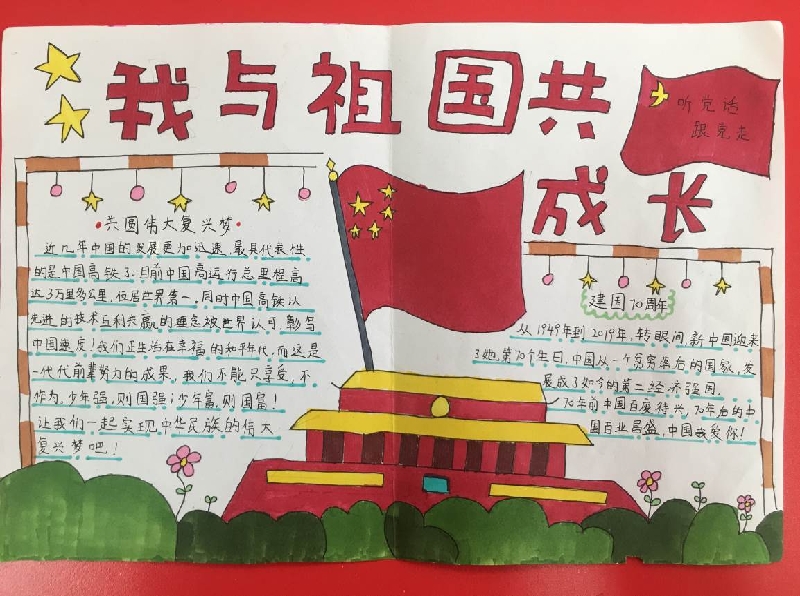 我与祖国共
成长
听党话
跟党走
共圆伟大复兴梦
近几年中国的发展更加迅速，最具代表性
的是中国高铁了.目前中国高运行总里程高
达3万里多公里，位居世界第一，同时中国高铁以
先进的技术互利共赢的理念被世界认可，彰写
中国速度！我们正生活在幸福的和平年代，而这是
一代代前辈努力的成果，我们不能只享受，不
作为，少年强，则国强；少年富，则国富！
让我们一起实现中华民族的伟大
复兴梦吧！
建国70周年
从1949年到2019年，转眼间，新中国迎来
了她第70个生日，中国从一个贫穷落后的国家，发
展成了如今的第二经济强国。
70年前中国百废待兴，70年后的中
国百业昌盛，中国我爱你！